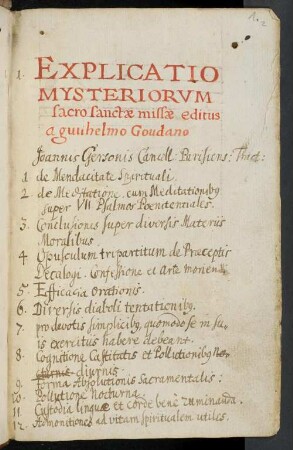 1. 2
1. EXPLICATIO
MYSTERIORVM
sacro sanctæ missæ editus
a guuihelmo Goudano
Joannis Gersonis Cancell: Parisiens: Tract:
1 de Mendacitate Spirituali.
2 de Meditatione, cum Meditationibꝫ
super VII Psalmos Poenitentiales.
3. Conclusiones super diversis Materiis
Moralibus.
4 Opusculum tripartitum de Præceptis
Decalogi. Confessione et Arte moriendi
5. Efficacia Orationis.
6. Diversis diaboli tentationibꝫ.
7. pro devotis simplicibꝫ, quomodo se in su-
is exercitus habere debeant.
8. Cognitione Castitatis et Pollutionibꝫ
diurnis.
9. Forma Absolutionis Sacramentalis:
10. Pollutione Nocturna.
11. Custodia linguæ et Corde bene ruminanda.
12. Admonitiones ad vitam spiritualem utiles.